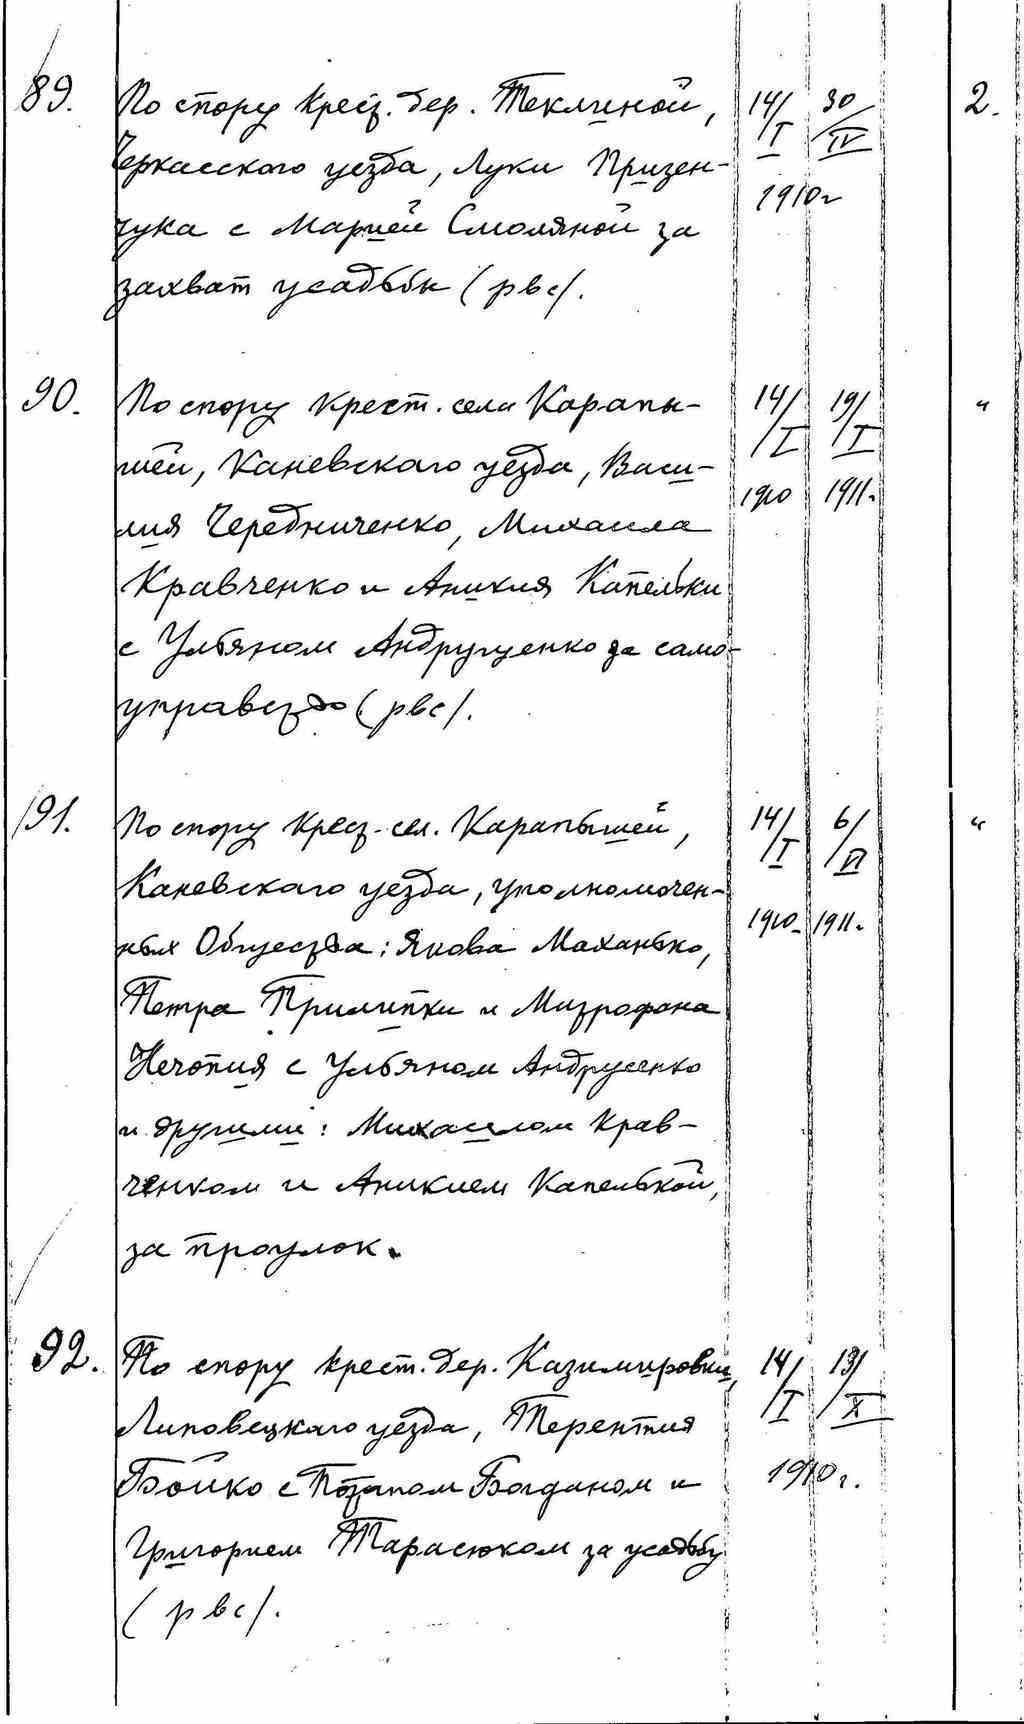 89. По спору крест. дер. Теклиной, 14/I 30/IV 2.
Черкасского уезда, Луки Призен-
чука с Марией Смоляной за 1910г
захват усадьбы (рвс).
90. По спору крест. села Карапы- 14/I 19/I "
шей, Каневского уезда, Васи-
лия Чередниченко, Михаила 1910 1911.
Кравченко и Аникия Капельки
с Ульяном Андрущенко за само-
управство (рвс).
91. По спору крест. сел. Карапышей, 14/I 6/VI "
Каневского уезда, уполномочен-
ных Общества: Якова Маханько, 1910. 1911.
Петра Прилипки и Митрофана
Нечопия с Ульяном Андрусенко
и другими: Михаилом Крав-
ченком и Аникием Капелькой,
за проулок.
92. По спору крест. дер. Казимировки, 14/I 13/X
Липовецкаго уезда, Терентия
Бойко с Потапом Богданом и 1910 г.
Григорием Тарасюком за усадьбу
(рвс).